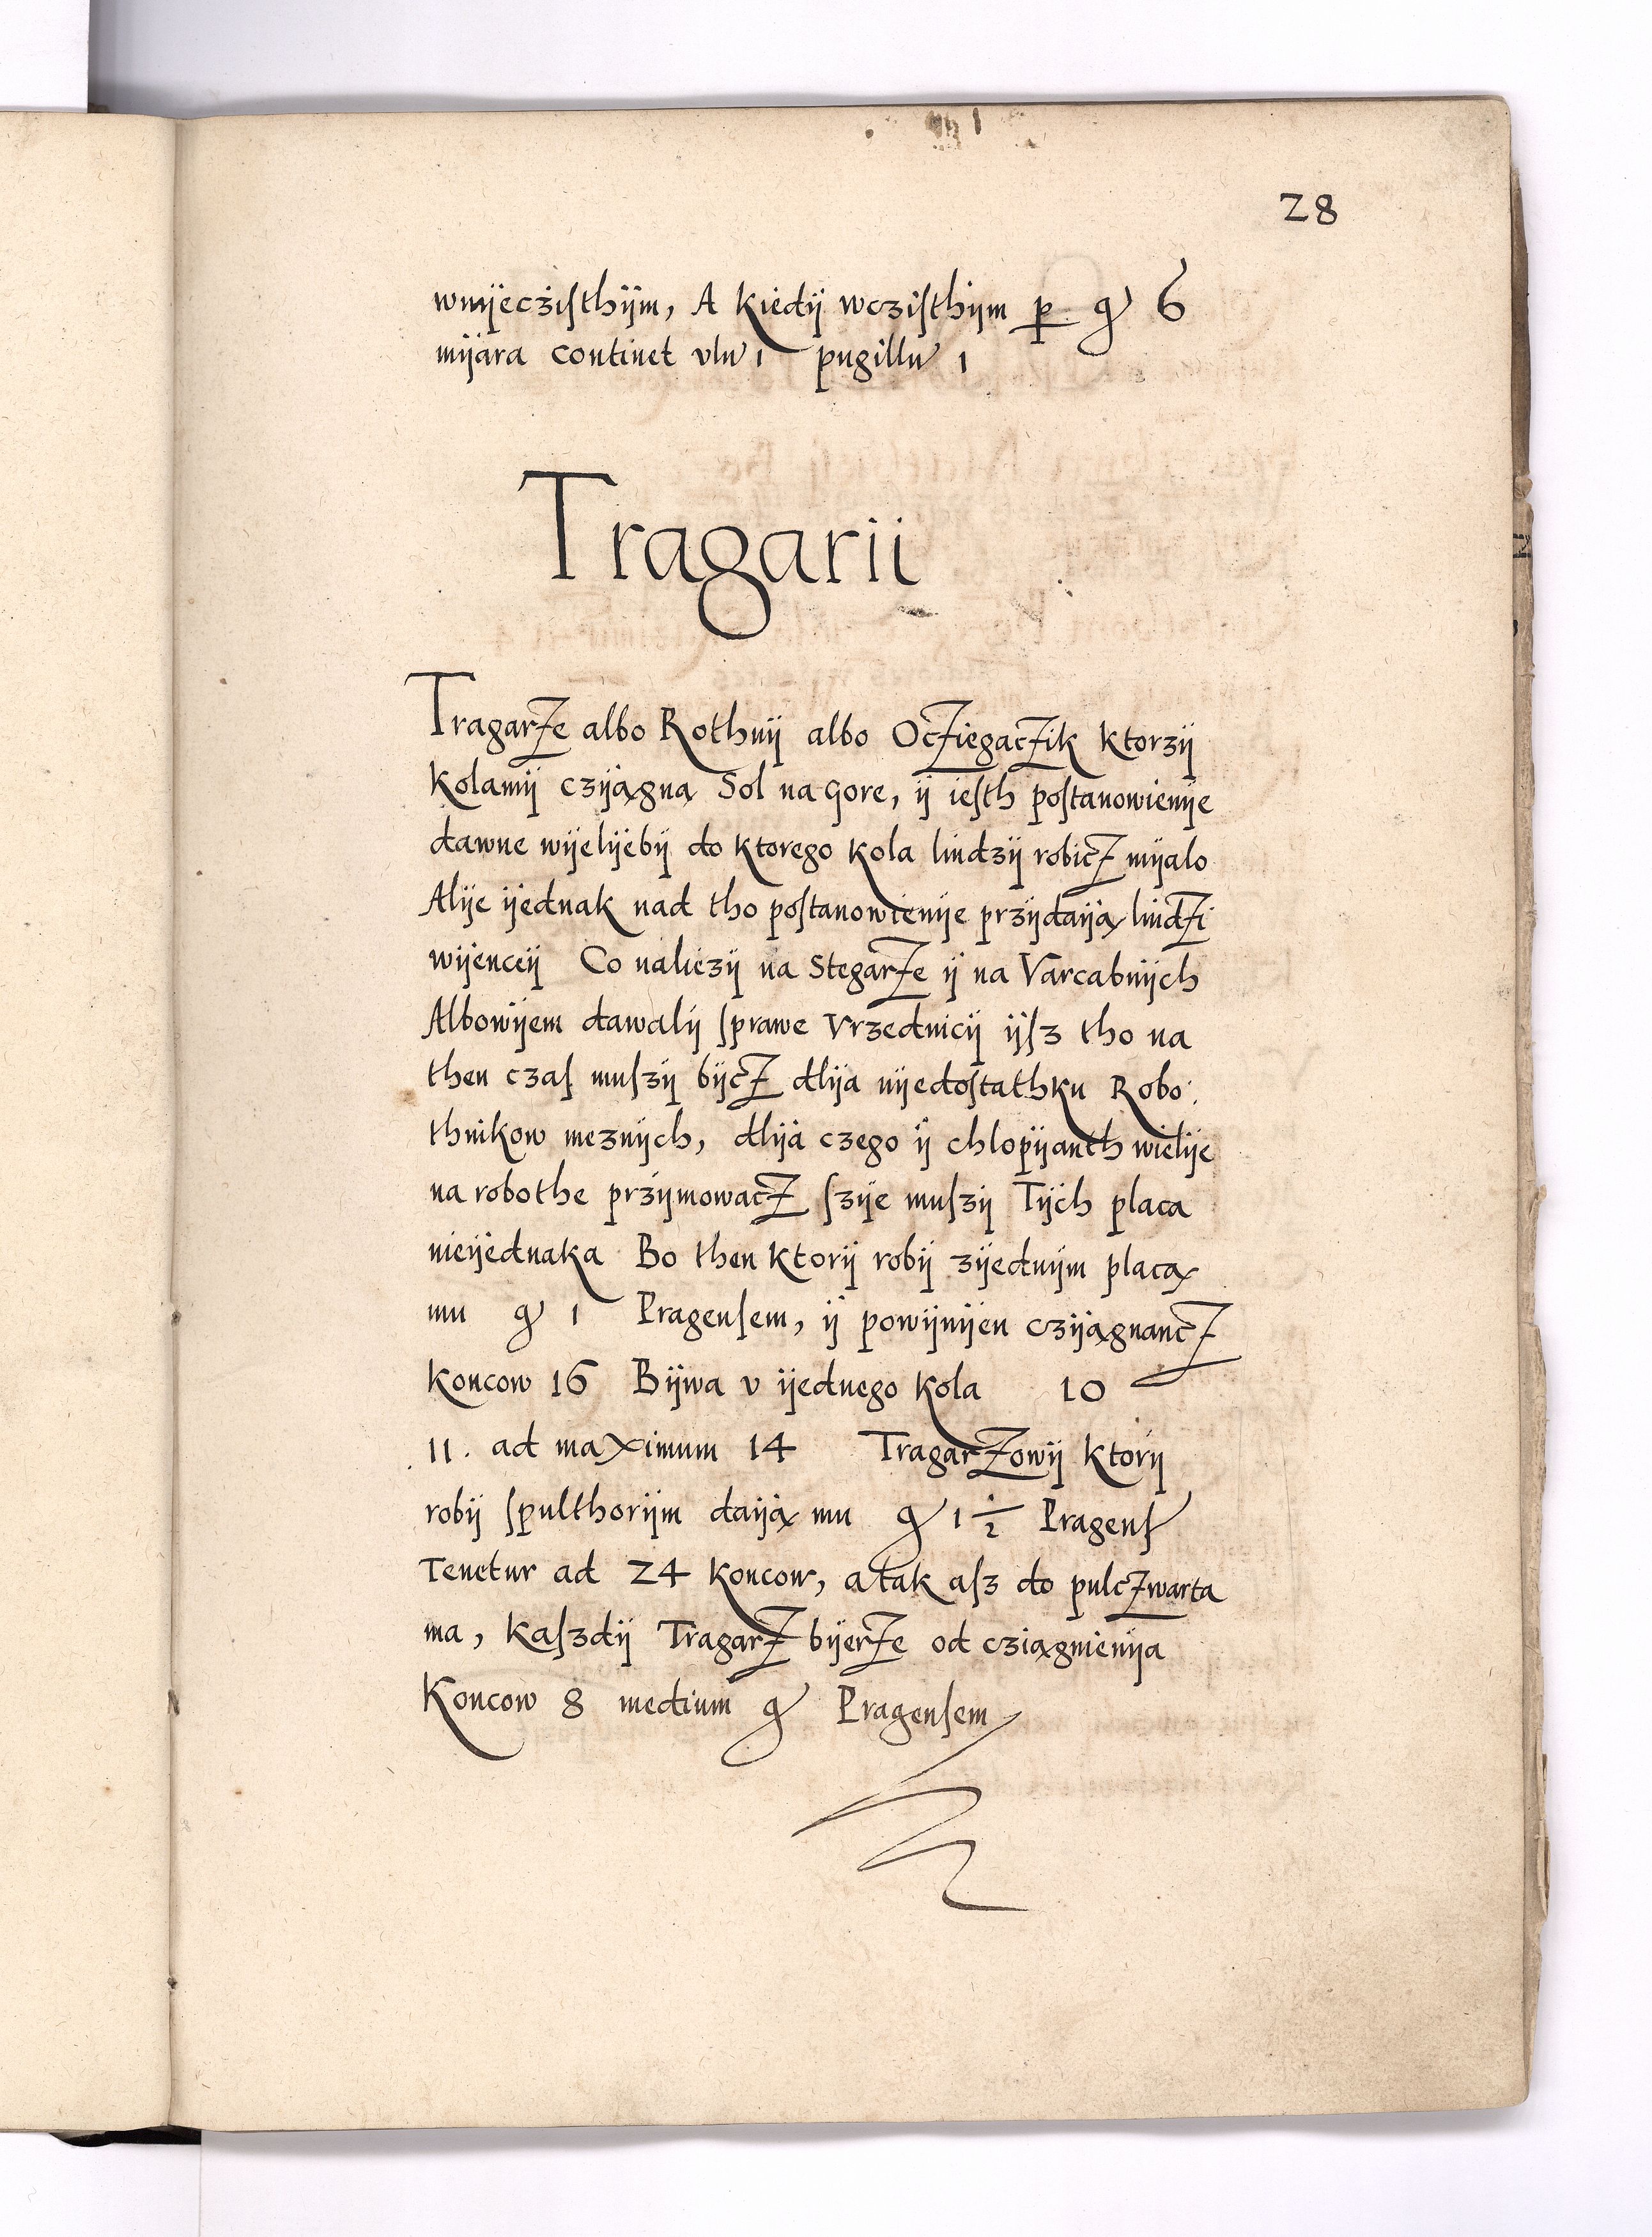 28
wnÿeczisthÿm, A kiedÿ wczisthÿm p g 6
mÿara continet vln 1 pugillu 1
Tragarii
Tragarze albo Rothnÿ albo Ocziegaczik ktorzÿ
kolamÿ czÿągną Sol na gore, ÿ iesth postanowienÿe
dawne wÿelÿebÿ do ktorego kola liudzÿ robicz mÿalo
Alÿe ÿednak nad tho postanowienÿe przÿdaÿą liudzi
wÿenceÿ Co naliezÿ na Stegarze ÿ na Varcabnÿch
Albowÿem dawalÿ sprawe Vrzednicÿ ÿsz tho na
then czas muszÿ bÿcz dlÿa nÿedostathku Robo:
thnikow meznÿch, dlÿa czego ÿ chlopÿanth wielÿe
na robothe przÿmowacz szÿe muszÿ Tÿch placa
nieÿednaka Bo then ktorÿ robÿ zÿednÿm placą
mu g 1 Pragensem, ÿ powÿnÿen czÿągnancz
koncow 16 Bÿwa v ÿednego kola 10
11. ad maximum 14 Tragarzowÿ ktorÿ
robÿ spulthorÿm daÿą mu g 1 1/2 Pragens
Tenetur ad 24 koncow, a tak asz do pulczwarta
ma, kaszdÿ Tragarz bÿerze od cziągnienÿa
Koncow 8 medium g Pragensem